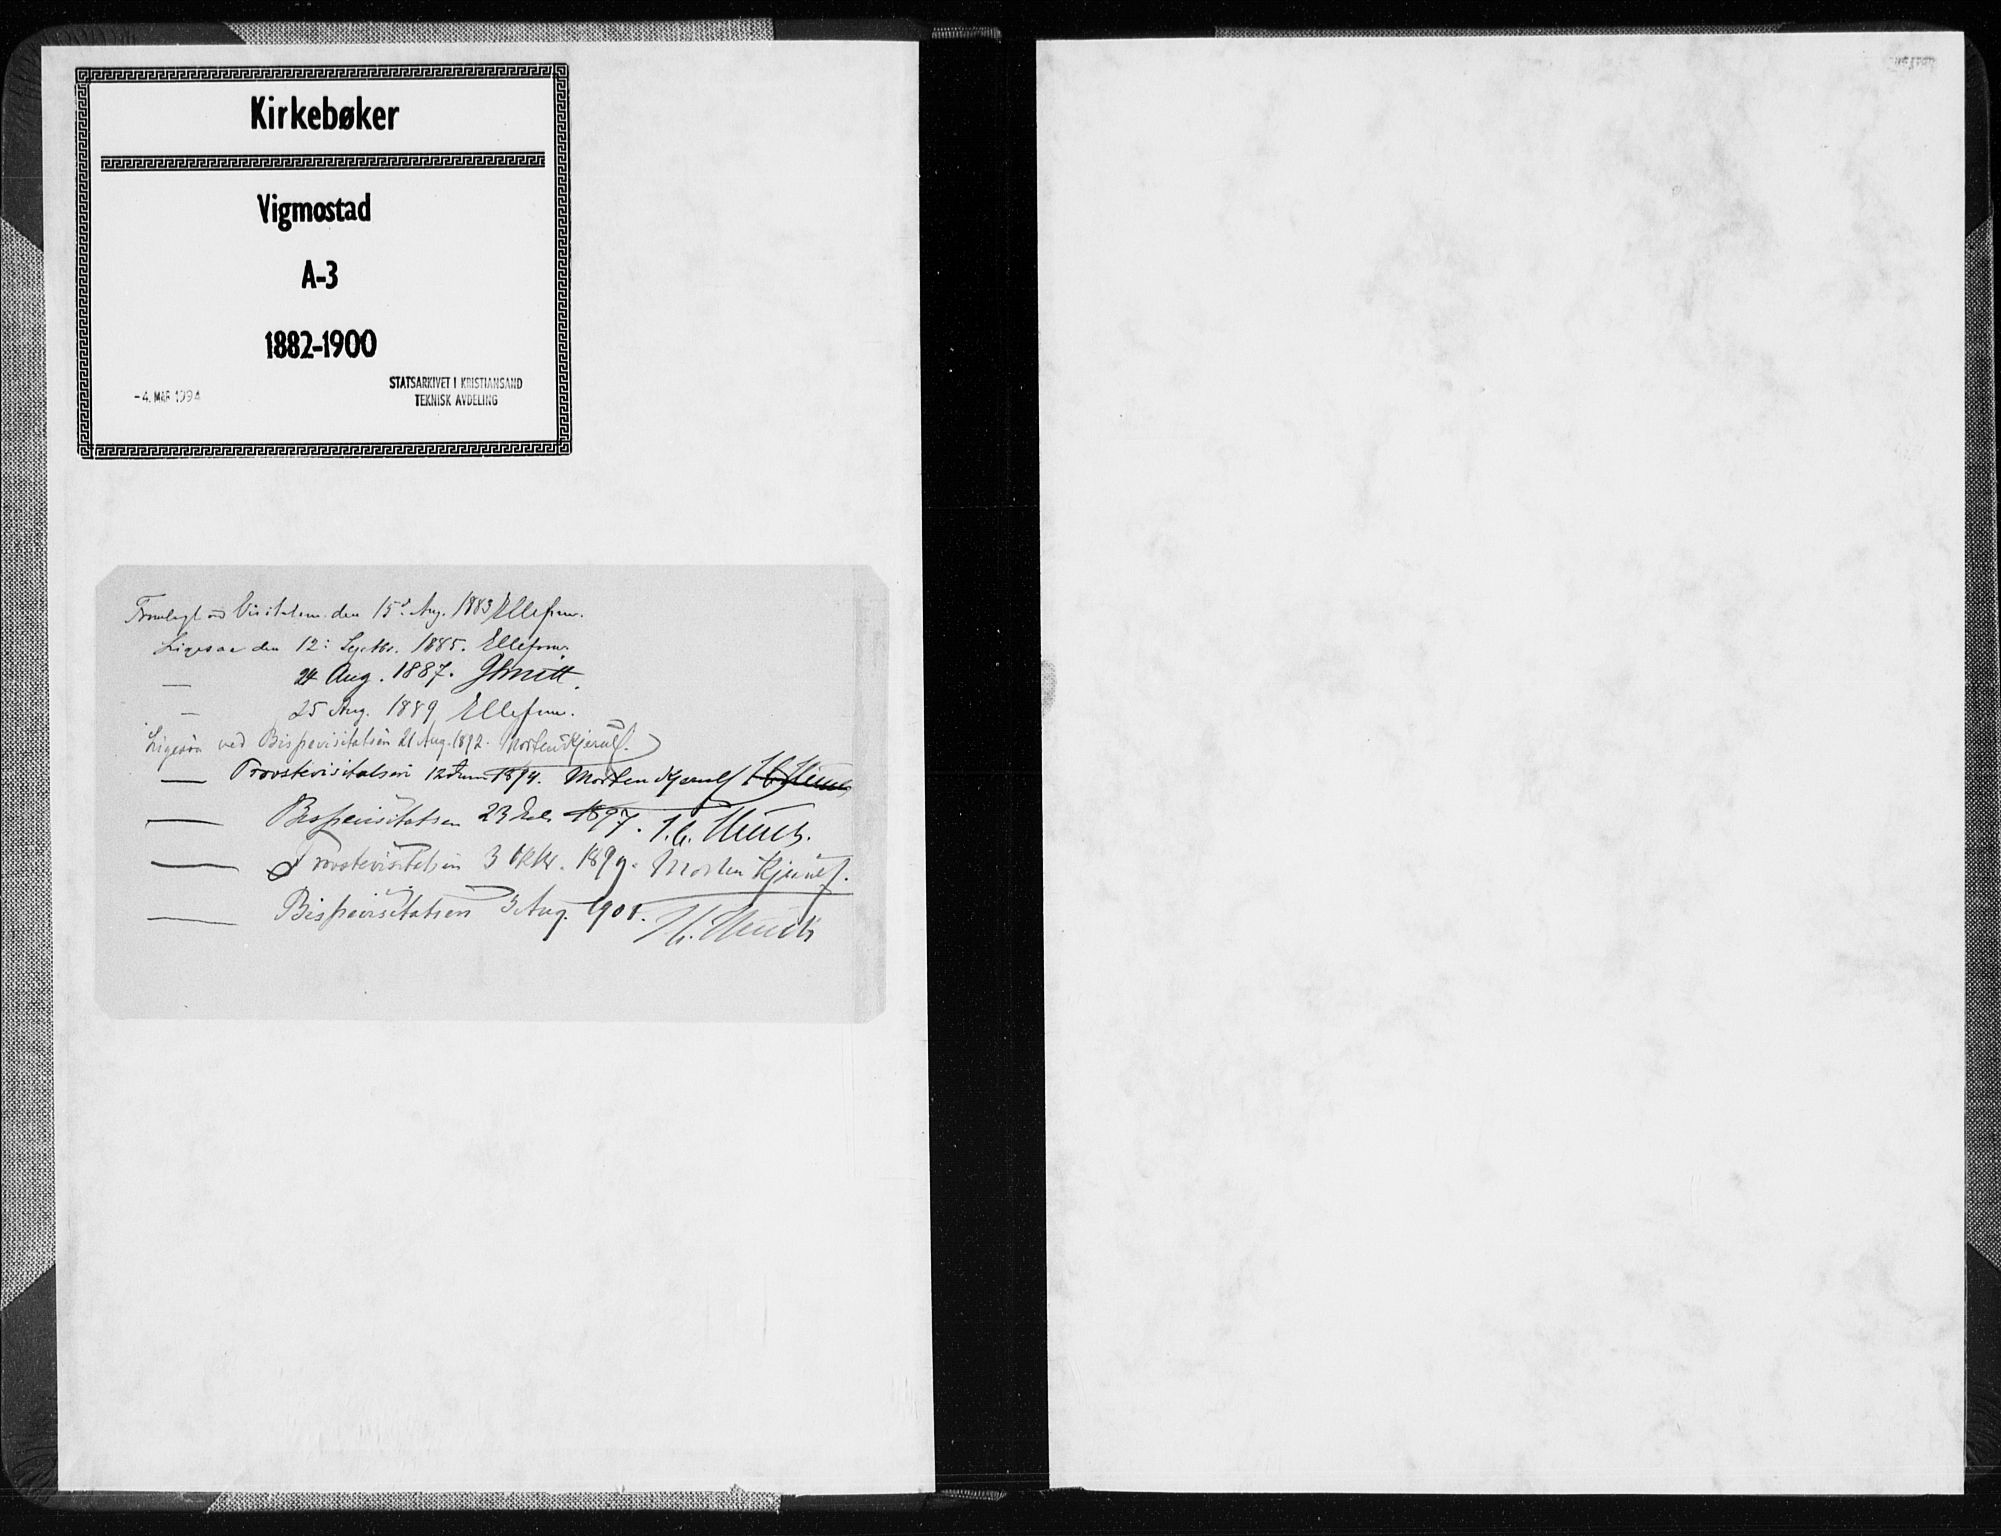 Kirkebøker
Vigmostad
A-3
1882-1900
-4. MAR 1994
STATSARKIVET I KRISTIANSAND
TEKNISK AVDELING
Fremlagt ved Visitatsen den 15d Aug. 1883 Ellefsen.
Ligesaa den 12: Septbr. 1885. Ellefsen.
— 24 Aug. 1887.
— 25 Aug. 1889 Ellefsen.
Ligesaa ved Bispevisitatsen 21 Aug. 1892. Morten Kjerulf.
— Provstevisitatsen 12 Juni 1894. Morten Kjerulf
— Bispevisitatsen 23 1897. J. C. Heuch.
— Provstevisitatsen 3 Oktbr. 1899. Morten Kjerulf.
— Bispevisitatsen 3 Aug. 1901. Heuch